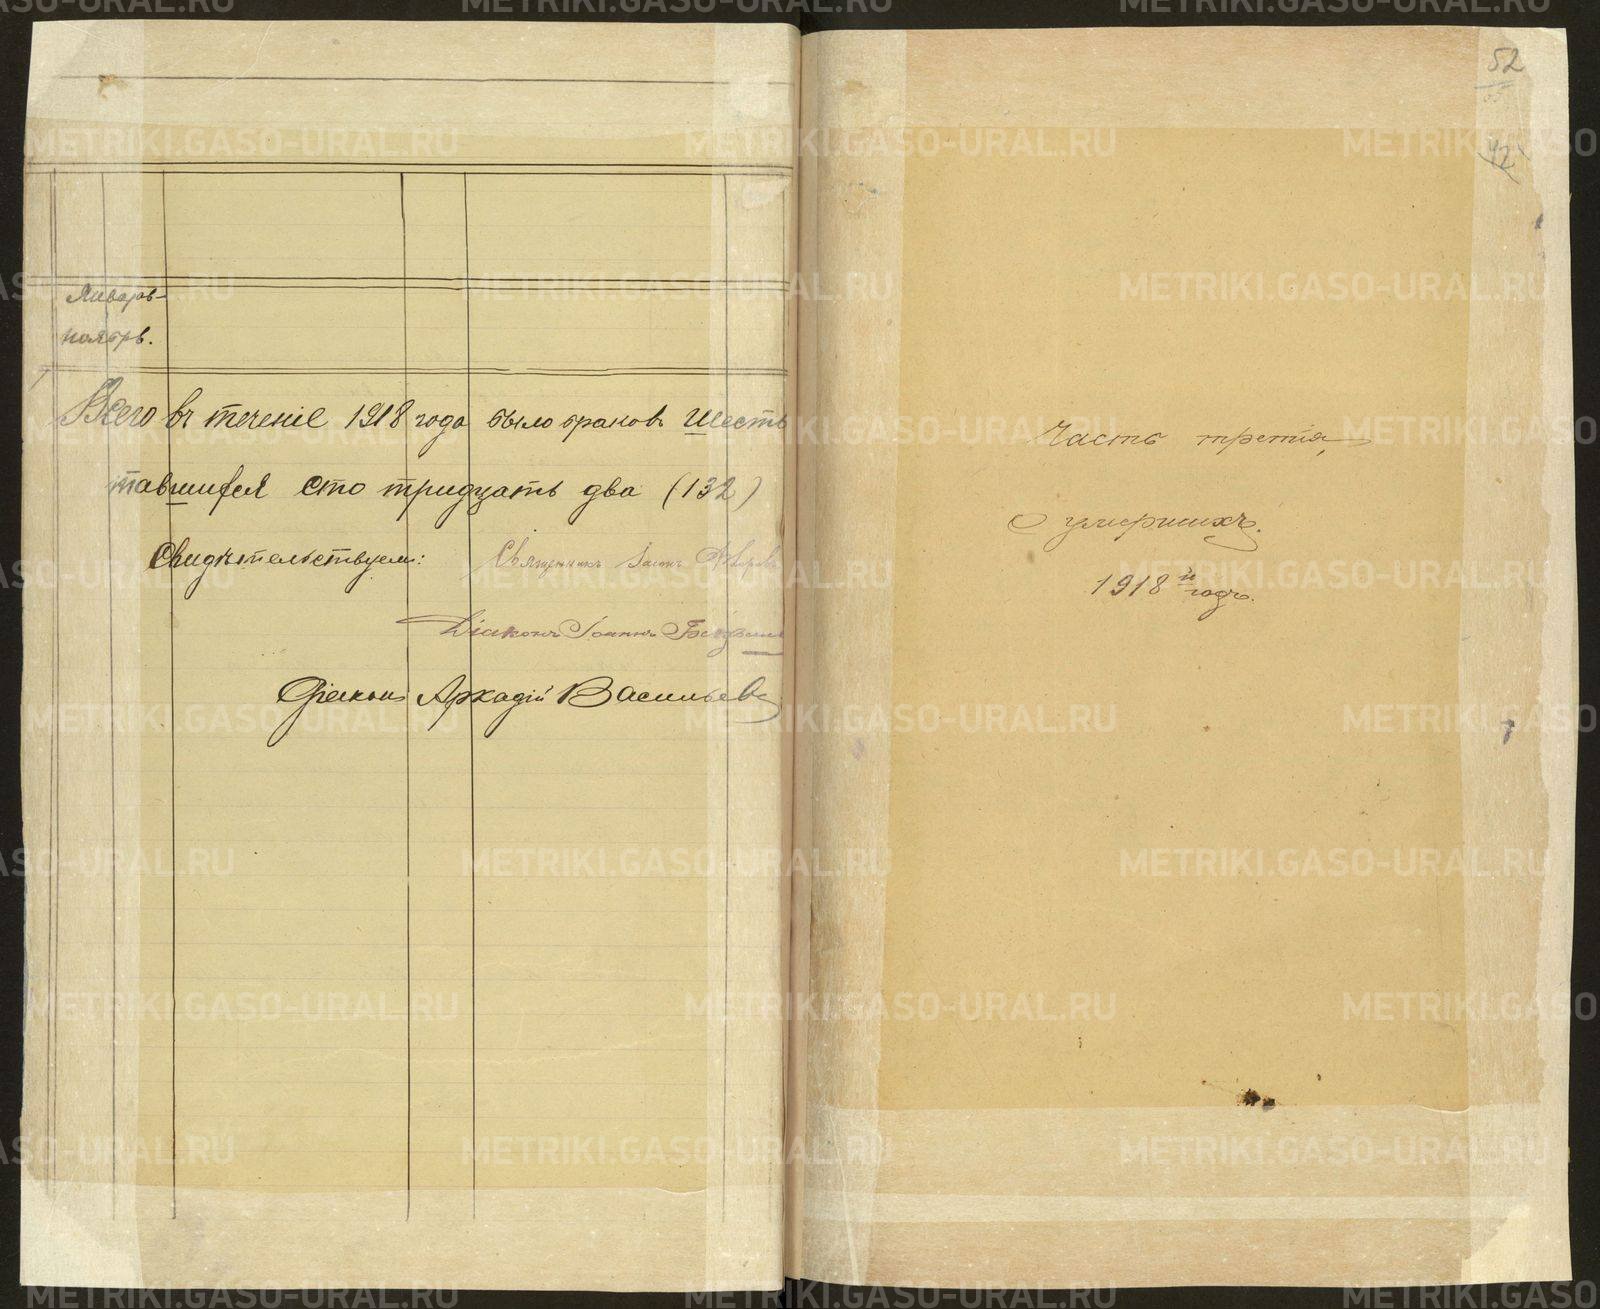 Январь-
ноябрь.
Всего въ теченіе 1918 года было браковъ шесть
тавшихся сто тридцать два (132)
Свидѣтельствуемъ: Священникъ
Діаконъ Іоаннъ
Діаконъ Аркадій Васильевъ
52
42
Часть третія,
О умершихъ.
1918 й годъ.
METRIKI.GASO-URAL.RU